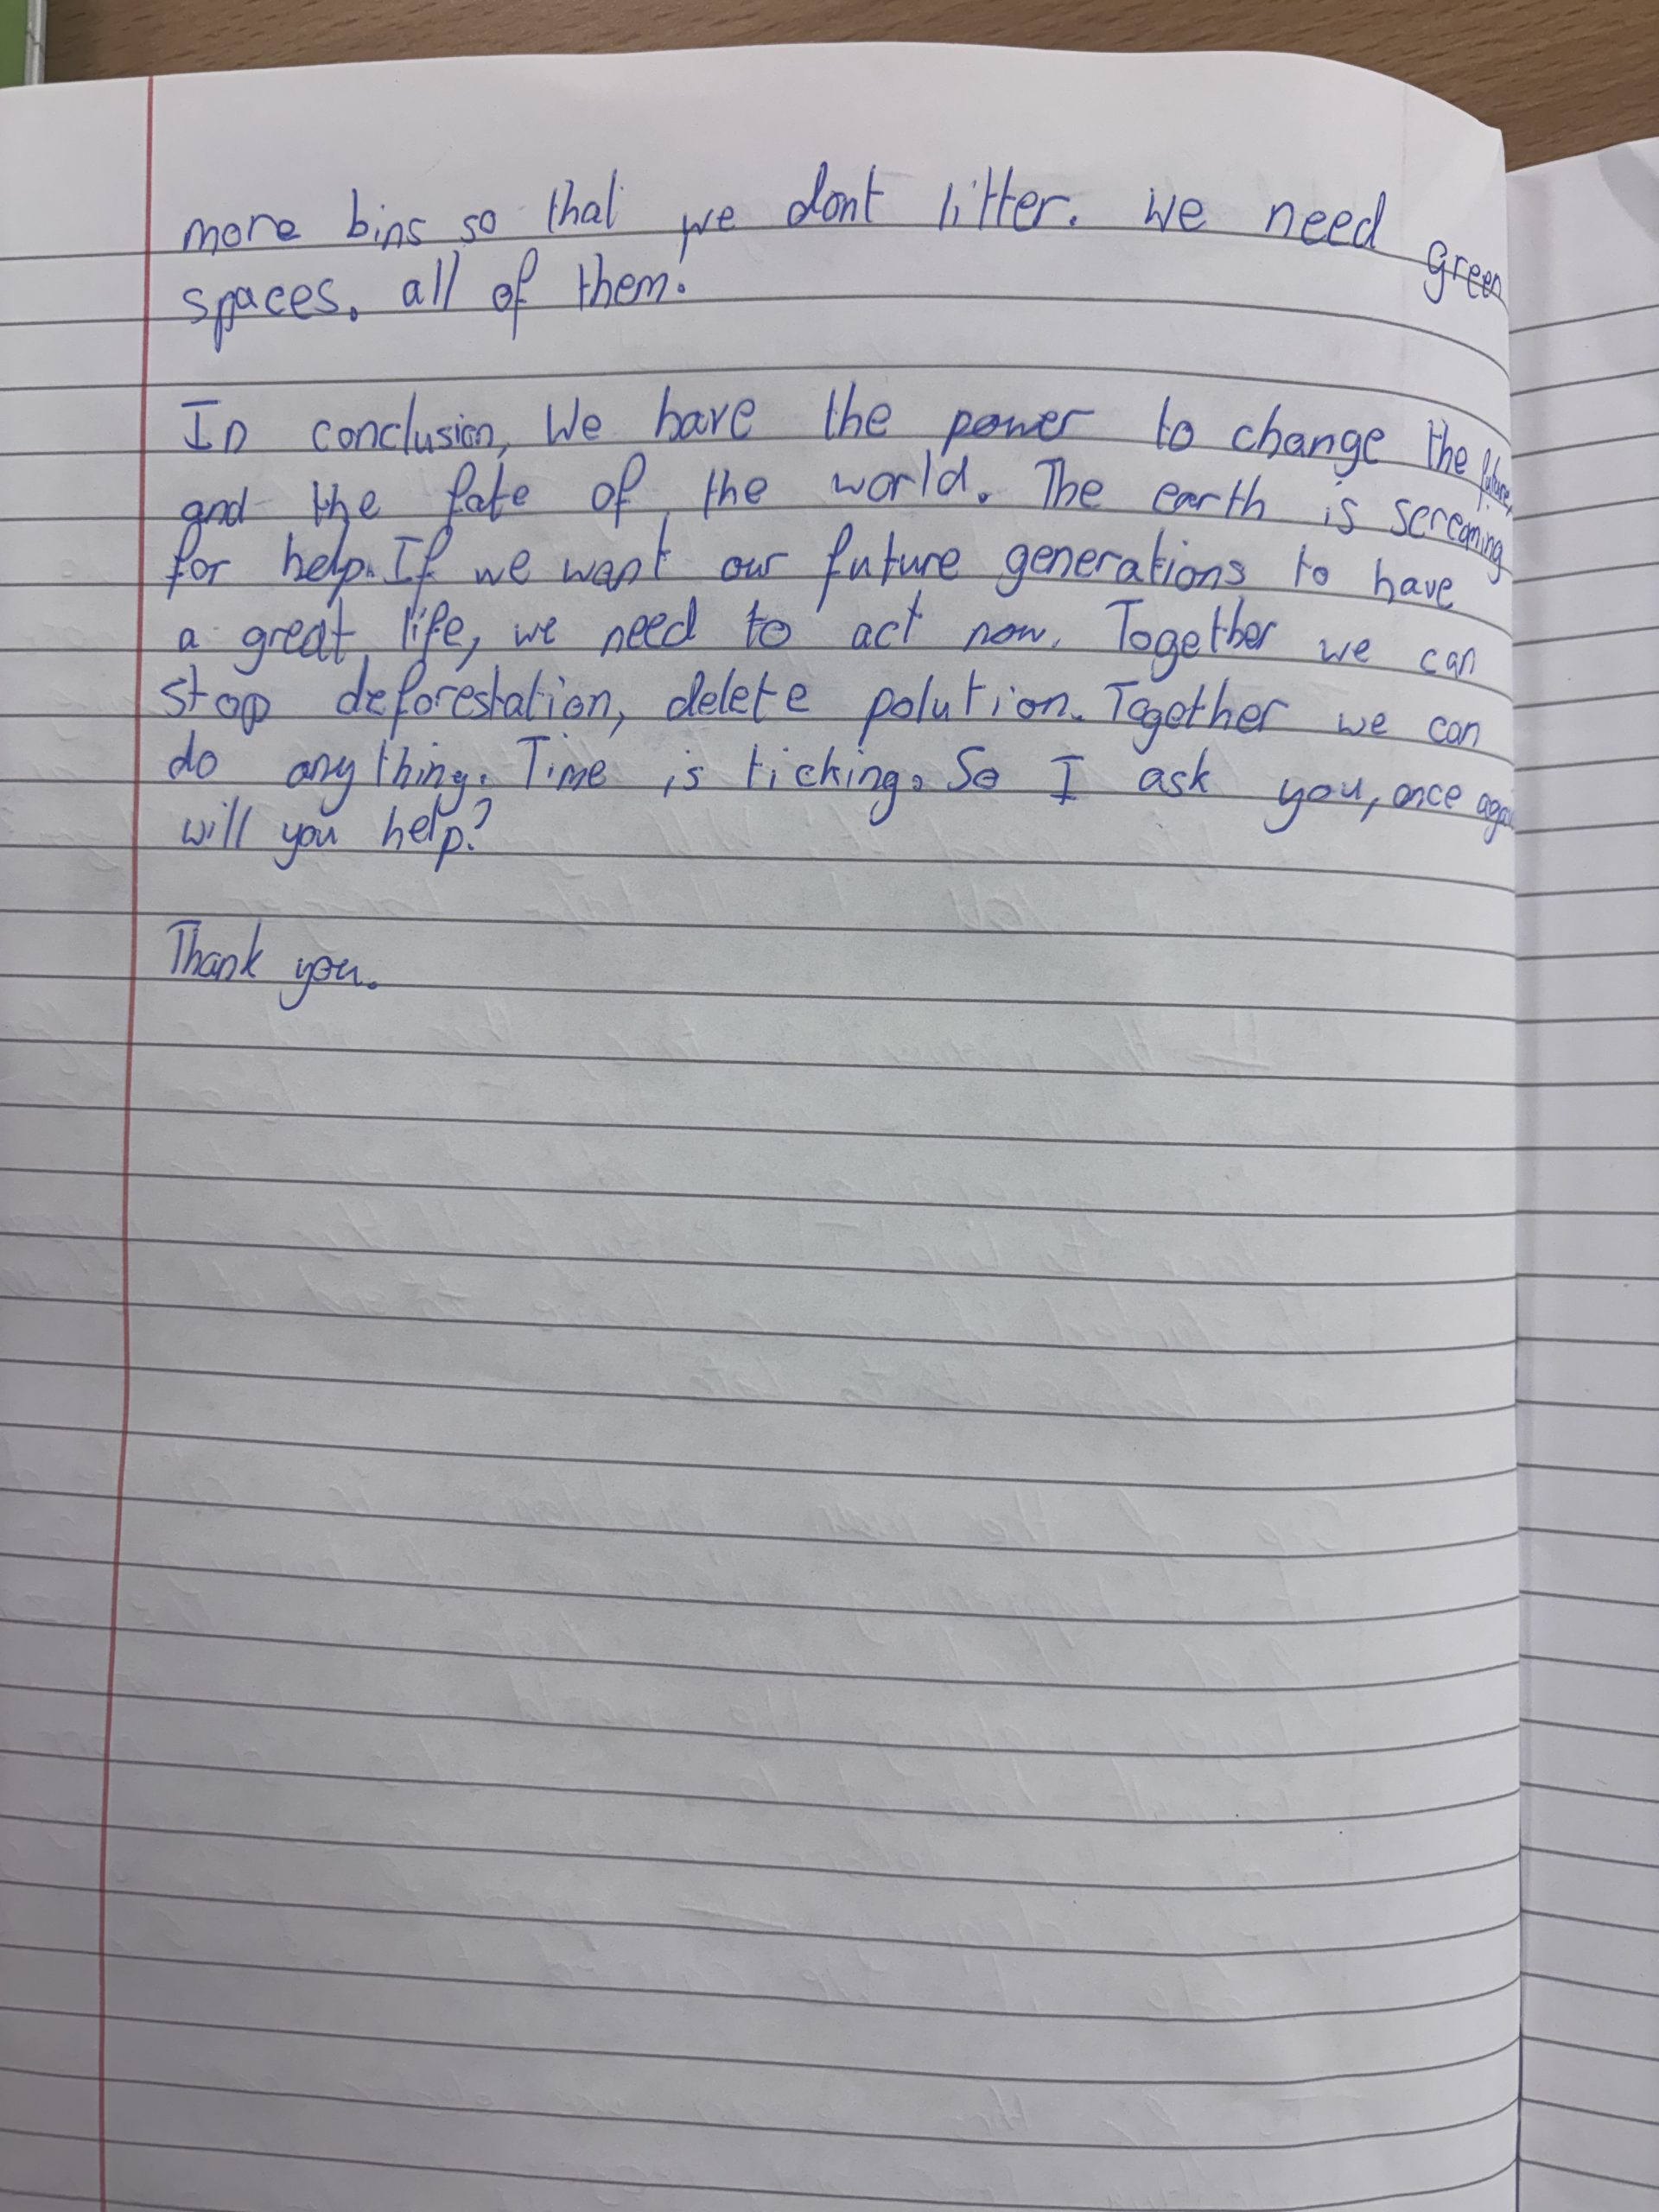 more bins so that we dont litter. We need green
spaces. all of them.
In conclusion, We have the power to change the future,
and the fate of the world. The earth is screaming
for help. If we want our future generations to have
a great life, we need to act now. Together we can
stop deforestation, delete polution. Together we can
do anything. Time is ticking. So I ask you, once again
will you help?
Thank you.